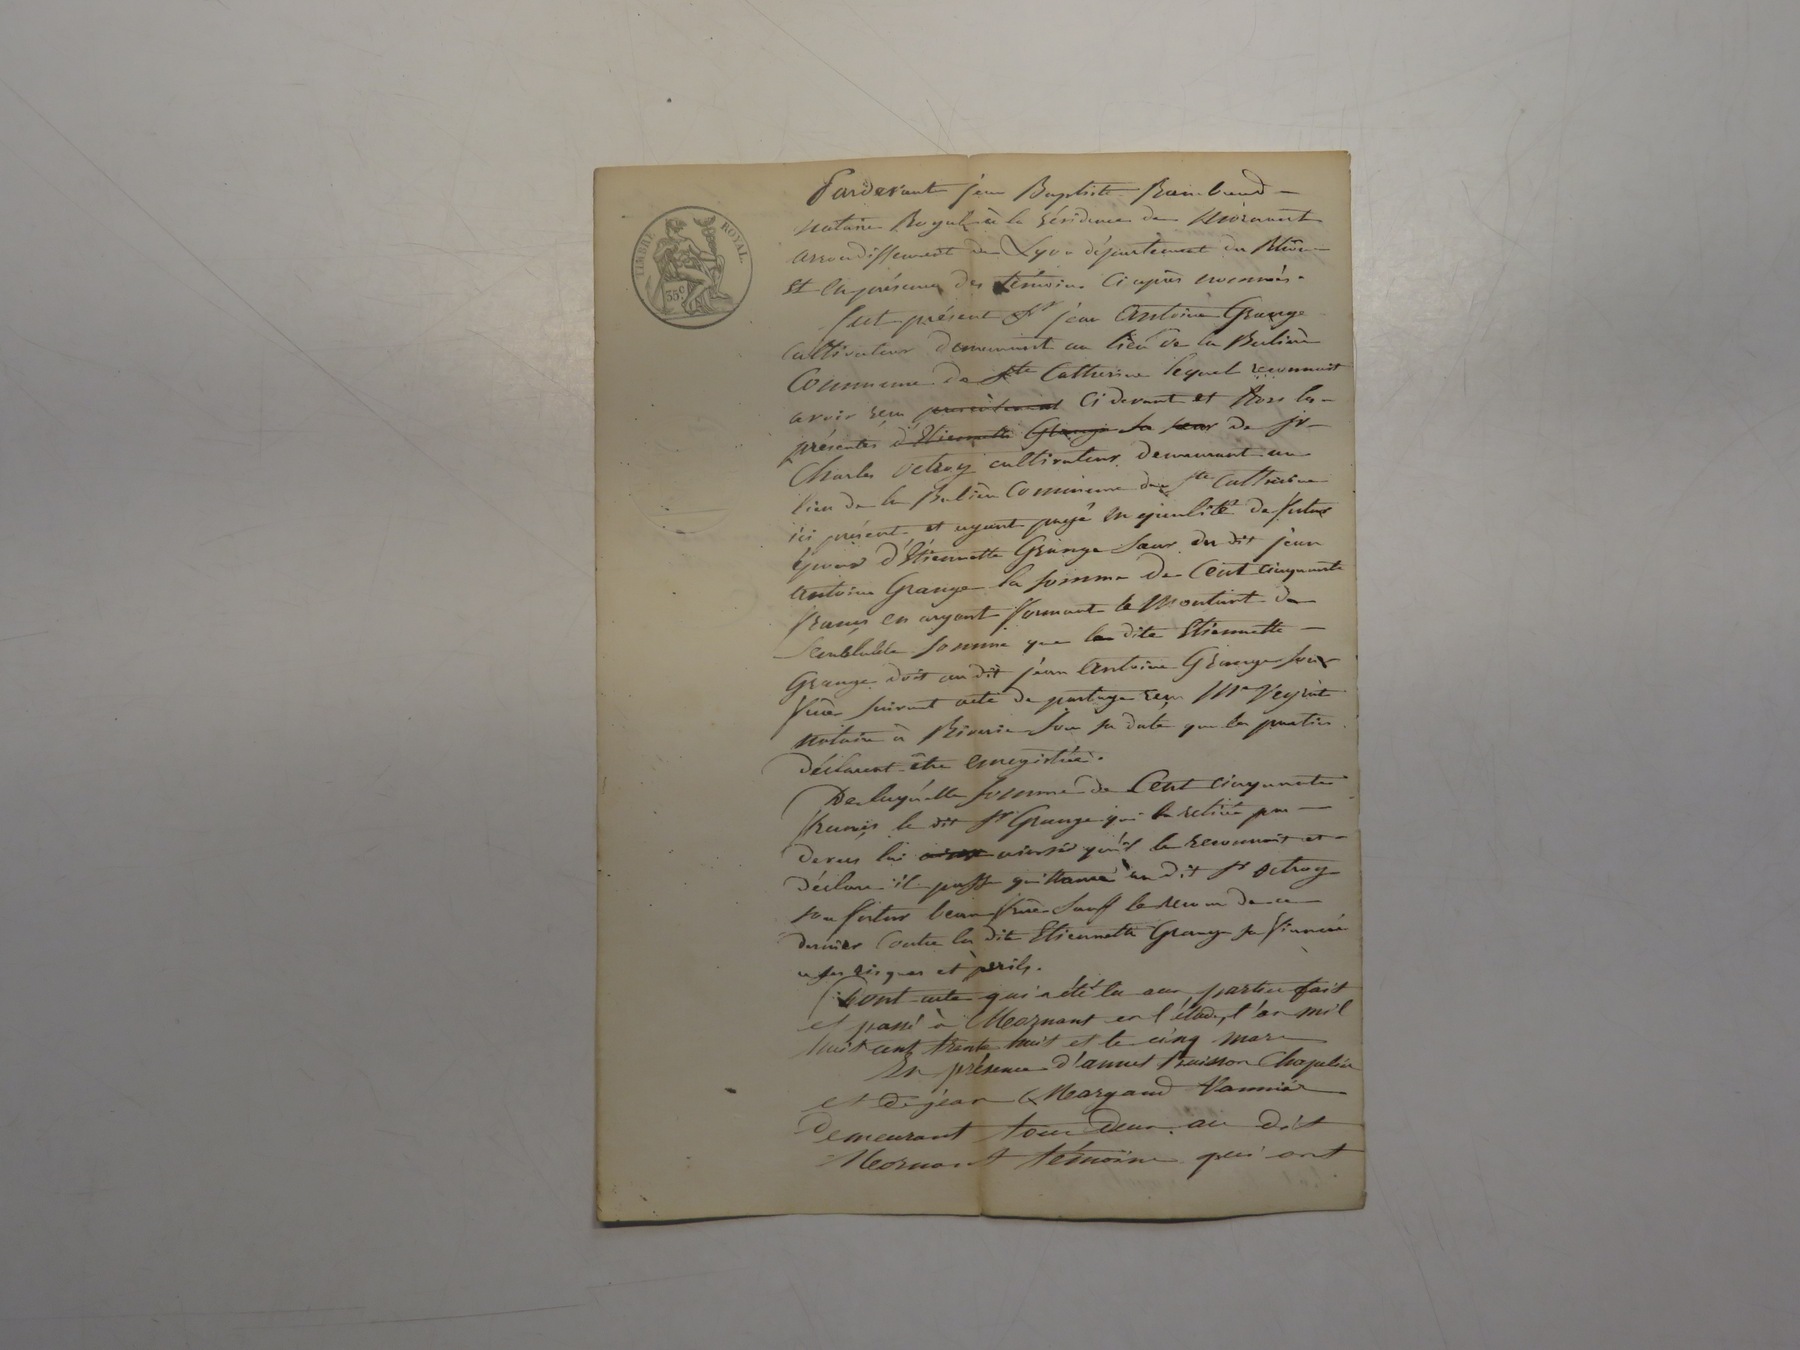 TIMBRE ROYAL.
35c
Pardevant jean Baptiste Raimbaud
notaire Royal à la résidence de Mornant
arrondissement de Lyon département du Rhône
Et En présence des témoins Ci après nommés.
fut présent Sr jean Antoine Grange
Cultivateur demeurant au lieu de la Bulière
Commune de Ste Catherine lequel reconnait
avoir reçu précédemment Ci devant et hors les
présentes d'Etiennette Grange sa sœur de Sr
Charles Octroy cultivateur demeurant au
lieu de la Bulière Commune de Ste Catherine
ici présent et ayant payé en qualité de futur
époux d'Etiennette Grange sœur du dit jean
Antoine Grange la somme de Cent cinquante
francs en argent formant le Montant de
Semblable somme que la dite Etiennette
Grange doit au dit jean Antoine Grange son
frère suivant acte de partage reçu Me Veyrat
notaire à Riverie sou sa date que les parties
déclarent être enregistrée.
De laquelle somme de Cent cinquante
francs le dit Sr Grange qui la retirée par
devers lui ainsi qu'il le reconnait et
déclare il passe quittance au dit Sr Octroy
son futur beau frère Sauf le recour de ce
dernier Contre la dite Etiennette Grange sa fiancée
a ses risques et périls.
Dont acte qui a été lu aux parties fait
et passé à Mornant en l'étude, l'an mil
huit cent trente huit et le cinq mars
En présence d'annet Buisson Chapelier
et de jean Margaud Vannier
Demeurant tous deux au dit
Mornant témoins qui ont